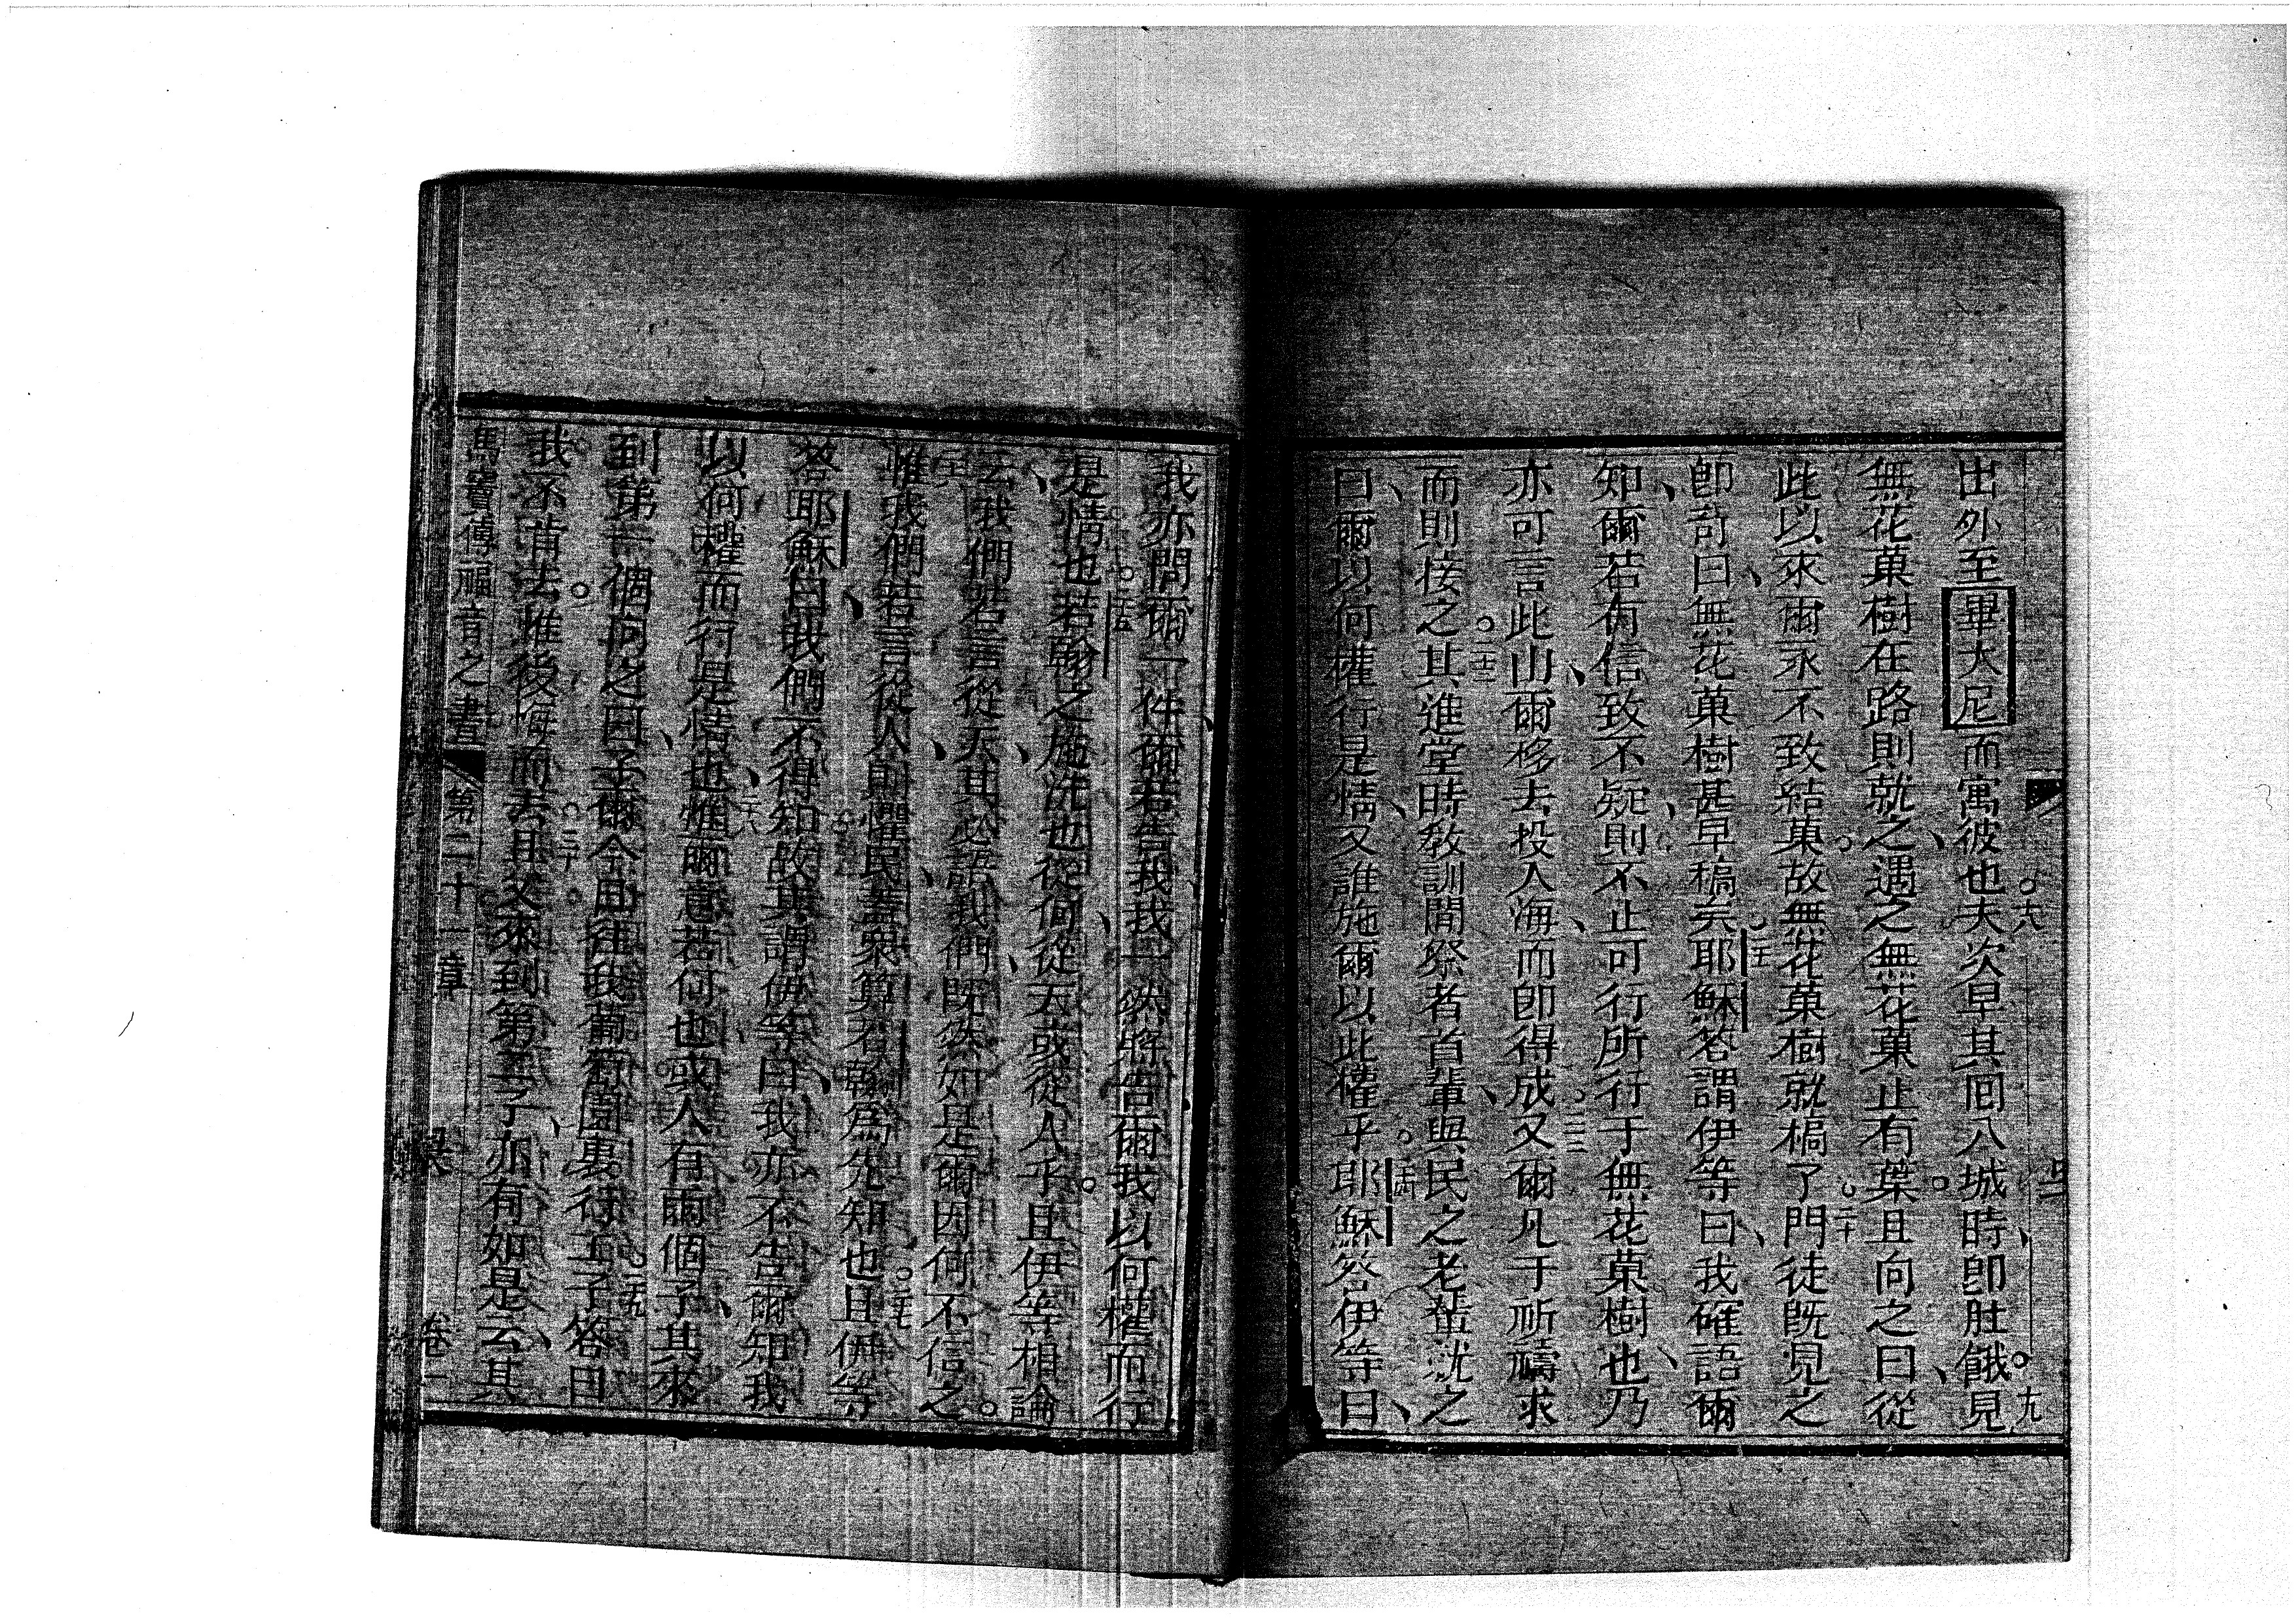 出外至畢大尼而寓彼也夫次早其囘入城時卽肚餓見
無花菓樹在路則就之遇之無花菓止有葉且向之曰從
此以來爾永不致結菓故無花菓樹就槁了門徒旣見之
卽奇曰無花菓樹甚早槁矣耶穌答謂伊等曰我確語爾
知爾若有信致不疑則不止可行所行于無花菓樹也乃
亦可言此山爾移去投入海而卽得成又爾凡于祈禱求
而則接之其進堂時敎訓間祭者首輩與民之老輩就之
曰爾以何權行是情又誰施爾以此權乎耶穌答伊等曰
我亦問爾一件爾若告我我一然照告爾我以何權而行
是情也若翰之施洗也從何從天或從人乎且伊等相論
云我們若言從天其必語我們旣然如是爾因何不信之
惟我們若言從人則懼民蓋衆算若翰爲先知也且伊等
答耶穌曰我們不得知故其謂伊等曰我亦不告爾知我
以何權而行是情也惟爾意若何也或人有兩個子其來
到第一個向之曰子爾今日往我葡萄園裏行工子答曰
我不肯去惟後悔而去且父來到第二子亦有如是云其
馬竇傳福音之書 第二十一章 卷一